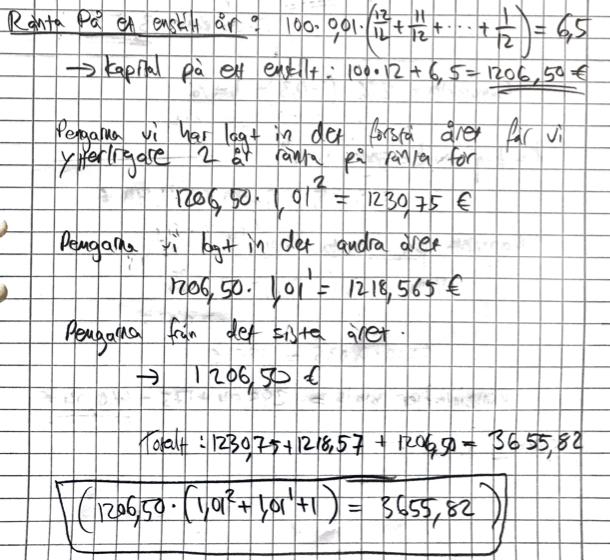 Ränta På ett enskilt år? 100·0,01·(12/12 + 11/12 + ··· + 1/12) = 6,5
→ kapital på ett enskilt: 100·12 + 6,5 = 1206,50 €
Pengarna vi har lagt in det första året får vi
ytterligare 2 år ränta på ränta för
1206,50 · 1,01² = 1230,75 €
Pengarna vi lagt in det andra året
1206,50 · 1,01¹ = 1218,565 €
Pengarna från det sista året.
→ 1206,50 €
Totalt: 1230,75 + 1218,57 + 1206,50 = 3655,82
(1206,50 · (1,01² + 1,01¹ + 1) = 3655,82)